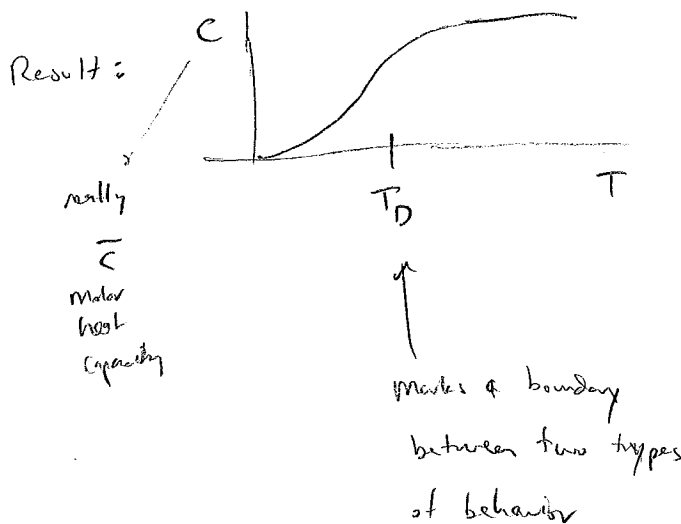 Result:
C
T_D
T
really
C̅
Molar
heat
capacity
Marks a boundary
between two types
of behavior